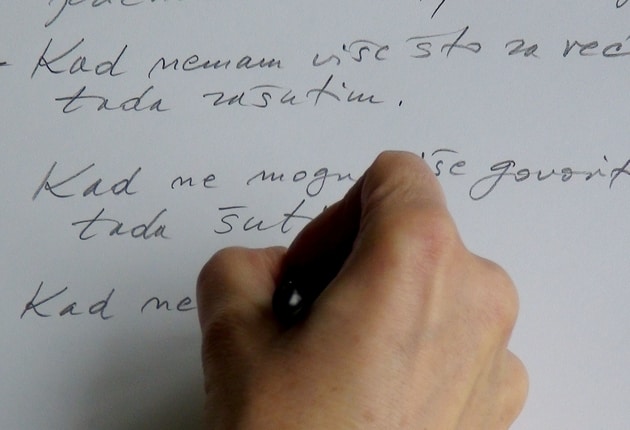 - Kad nemam više što za reć
tada zašutim.
Kad ne mogu više govorit
tada šut
Kad ne